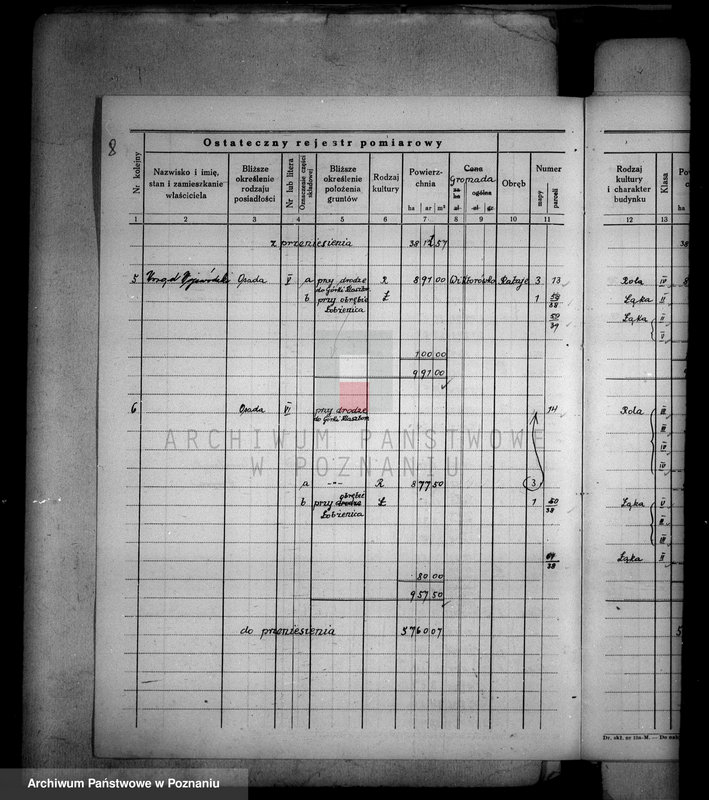 8
Ostateczny rejestr pomiarowy
Nr kolejny
Nazwisko i imię, stan i zamieszkanie właściciela
Bliższe określenie rodzaju posiadłości
Nr lub litera
Oznaczenie części składowej
Bliższe określenie położenia gruntów
Rodzaj kultury
Powierzchnia
ha ar m²
Cena
Gromada
ogólna
zł gr
Obręb
Numer
mapy parceli
Rodzaj kultury i charakter budynku
Klasa
1 2 3 4 5 6 7 8 9 10 11 12 13
z przeniesienia 38 57 38
5 Urząd Osada V a przy drodze R 8 91 00 Wiktorówko Rataje 3 13 Rola IV
do Górki Klaszton
b przy obrębie Ł 1 Łąka II
Łobżenica
50/39 Łąka II
V
1 00 00
9 91 00
6 Osada VI przy drodze 14 Rola III
do Górki Klaszton
III
IV
ARCHIWUM PAŃSTWOWE
W POZNANIU
IV
a -"- R 8 77 50 3
b przy drodze obrębie Ł 1 50/38 Łąka V
Łobżenica
II
IV
/38 Łąka II
80 00
9 57 50
do przeniesienia 57 60 07 5
Archiwum Państwowe w Poznaniu